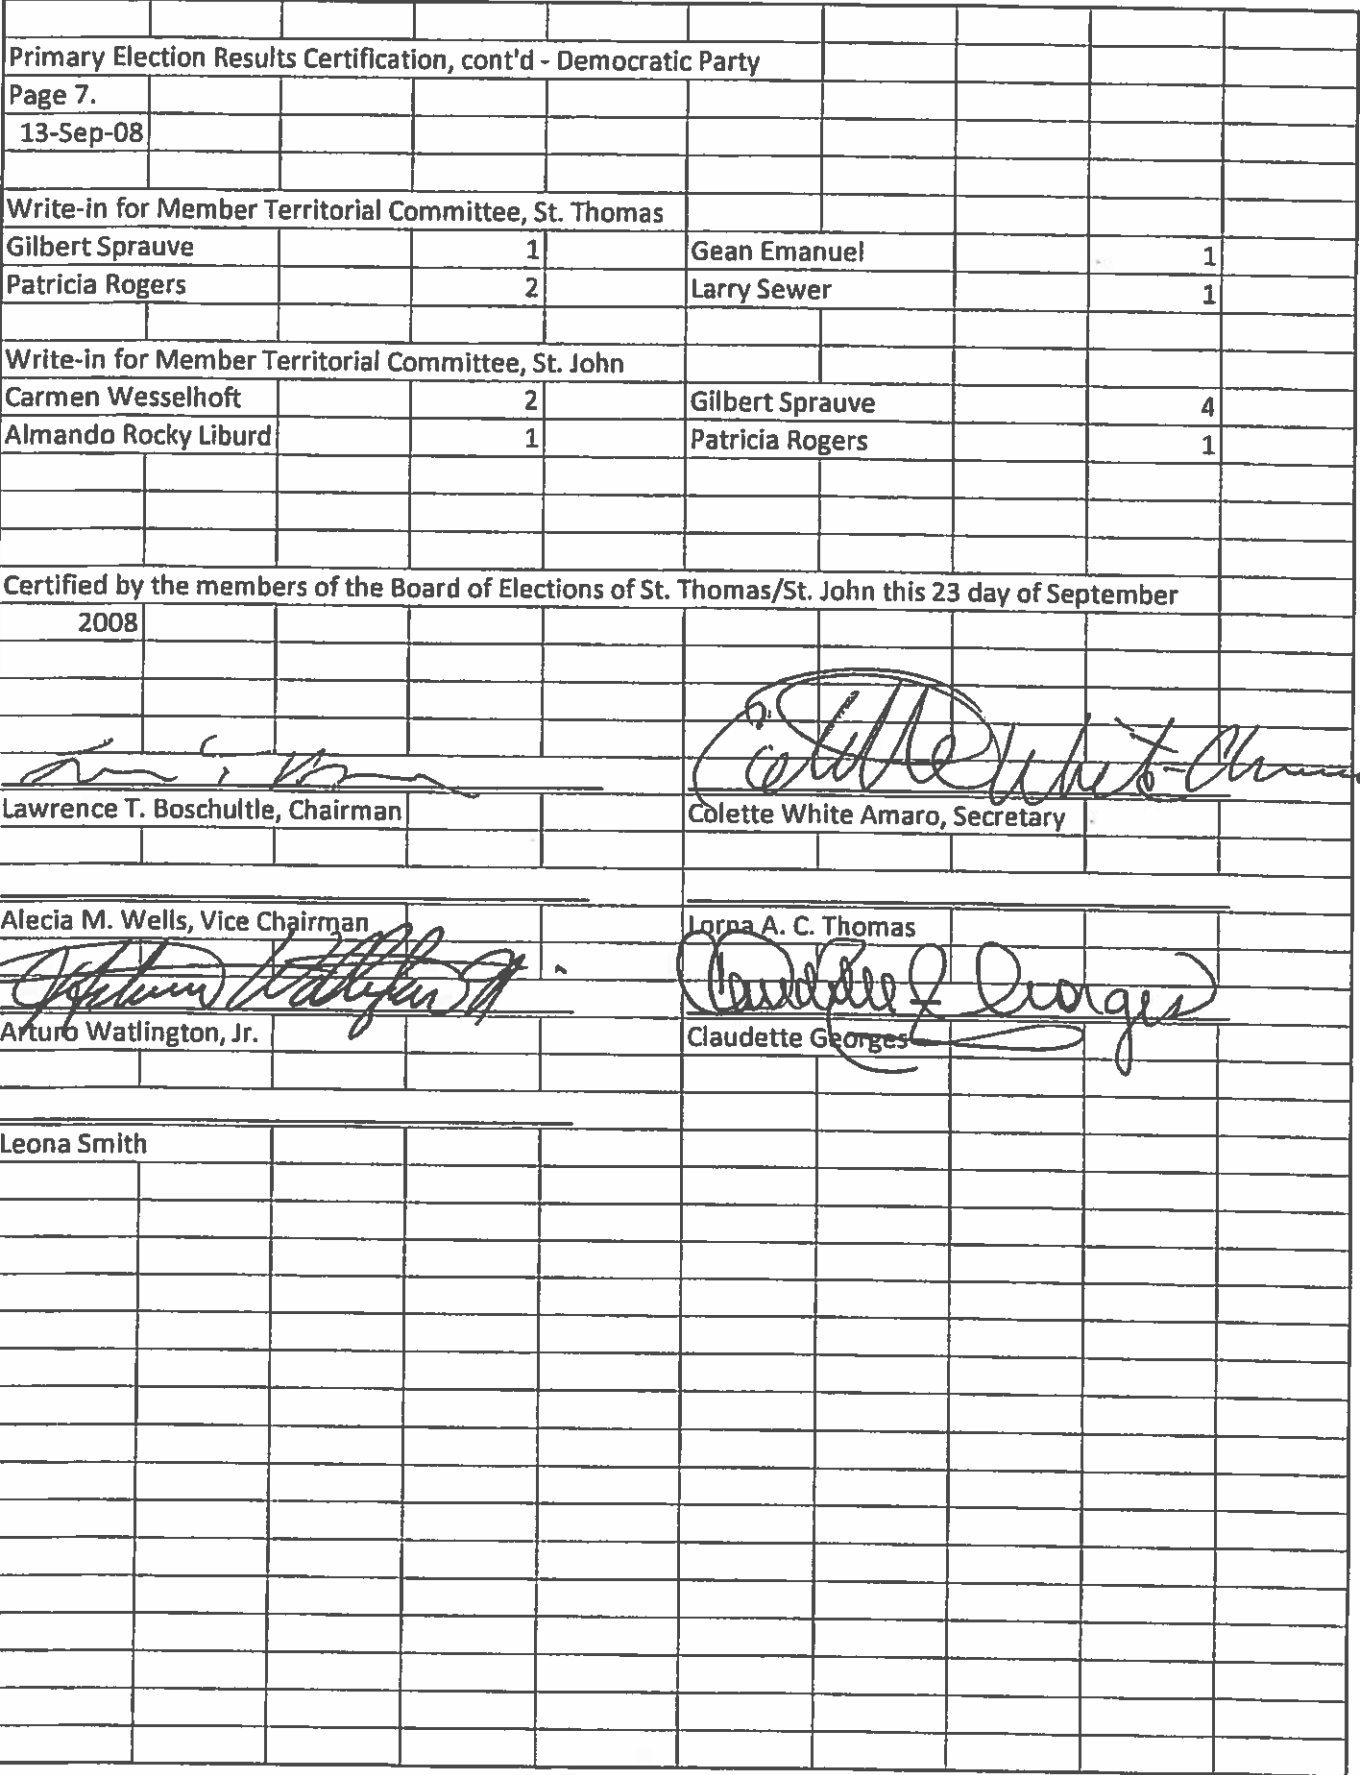 Primary Election Results Certification, cont'd - Democratic Party
Page 7.
13-Sep-08
Write-in for Member Territorial Committee, St. Thomas
Gilbert Sprauve 1 Gean Emanuel 1
Patricia Rogers 2 Larry Sewer 1
Write-in for Member Territorial Committee, St. John
Carmen Wesselhoft 2 Gilbert Sprauve 4
Almando Rocky Liburd 1 Patricia Rogers 1
Certified by the members of the Board of Elections of St. Thomas/St. John this 23 day of September
2008
Lawrence T. Boschultle, Chairman Colette White Amaro, Secretary
Alecia M. Wells, Vice Chairman Lorna A. C. Thomas
Arturo Watlington Jr. Claudette J. Georges
Arturo Watlington, Jr. Claudette Georges
Leona Smith